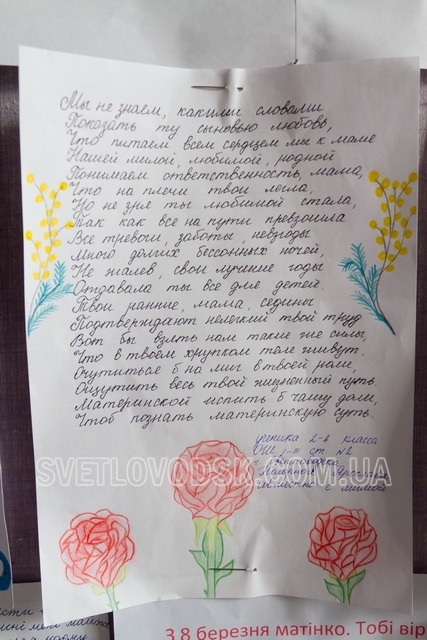 Мы не знаем, какими словами
Показать ту сыновью любовь,
Что питаем всем сердцем мы к маме
Нашей милой, любимой, родной
Понимаем ответственность, мама,
Что на плечи твои легла,
Но не зря ты любимой стала,
Так как все на пути превзошла
Все тревоги, заботы, невзгоды
Много долгих бессонных ночей,
Не жалев, свои лучшие годы
Отдавала ты все для детей.
Твои ранние, мама, седины
Подтверждают нелегкий твой труд
Вот бы взять нам такие же силы,
Что в твоем хрупком теле живут.
Очутиться б на миг в твоей роли,
Ощутить весь твой жизненный путь.
Материнской испить б чашу доли,
Чтоб познать материнскую суть.
ученика 2-А класса
ОШ I-III ст №2
г. Светловодска
совместно с мамой
SVETLOVODSK.COM.UA
З 8 березня матінко. Тобі вір